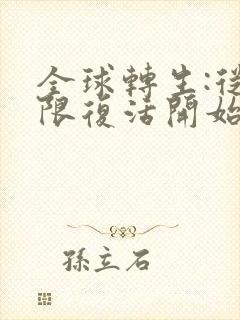 全球轉生:從
限復活開始
孫立石